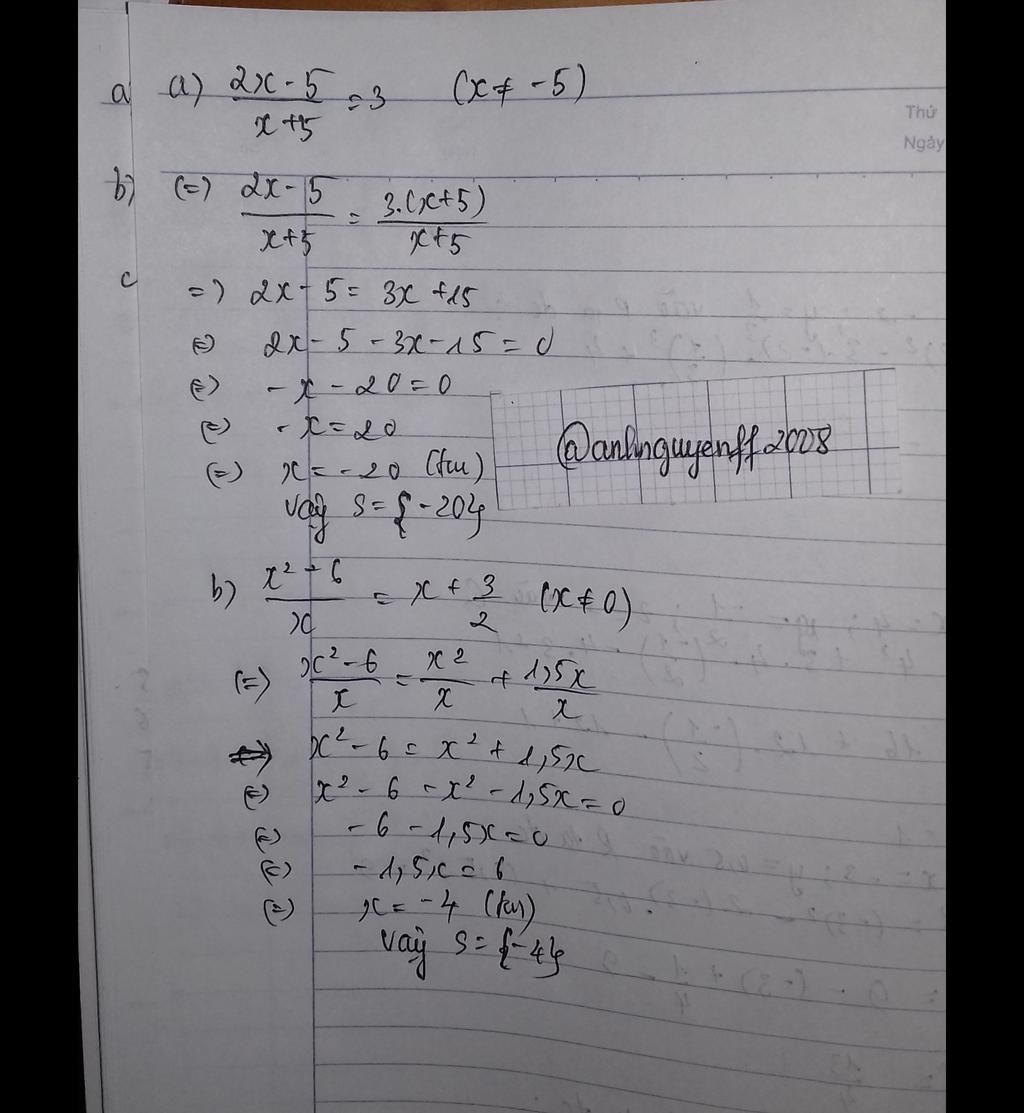 a a) (2x - 5)/(x + 5) = 3 (x ≠ -5)
Thứ
Ngày
b) (=) (2x - 5)/(x + 5) = 3.(x+5)/(x+5)
c
=) 2x - 5 = 3x + 15
(=) 2x - 5 - 3x - 15 = 0
(=) - x - 20 = 0
(=) - x = 20
(=) x = -20 (tm)
Vậy S = {-20}
@anhnguyenff2008
b) (x² - 6)/x = x + 3/2 (x ≠ 0)
(=) (x² - 6)/x = x²/x + 1,5x/x
=) x² - 6 = x² + 1,5x
(=) x² - 6 - x² - 1,5x = 0
(=) - 6 - 1,5x = 0
(=) - 1,5x = 6
(=) x = -4 (tm)
Vậy S = {-4}